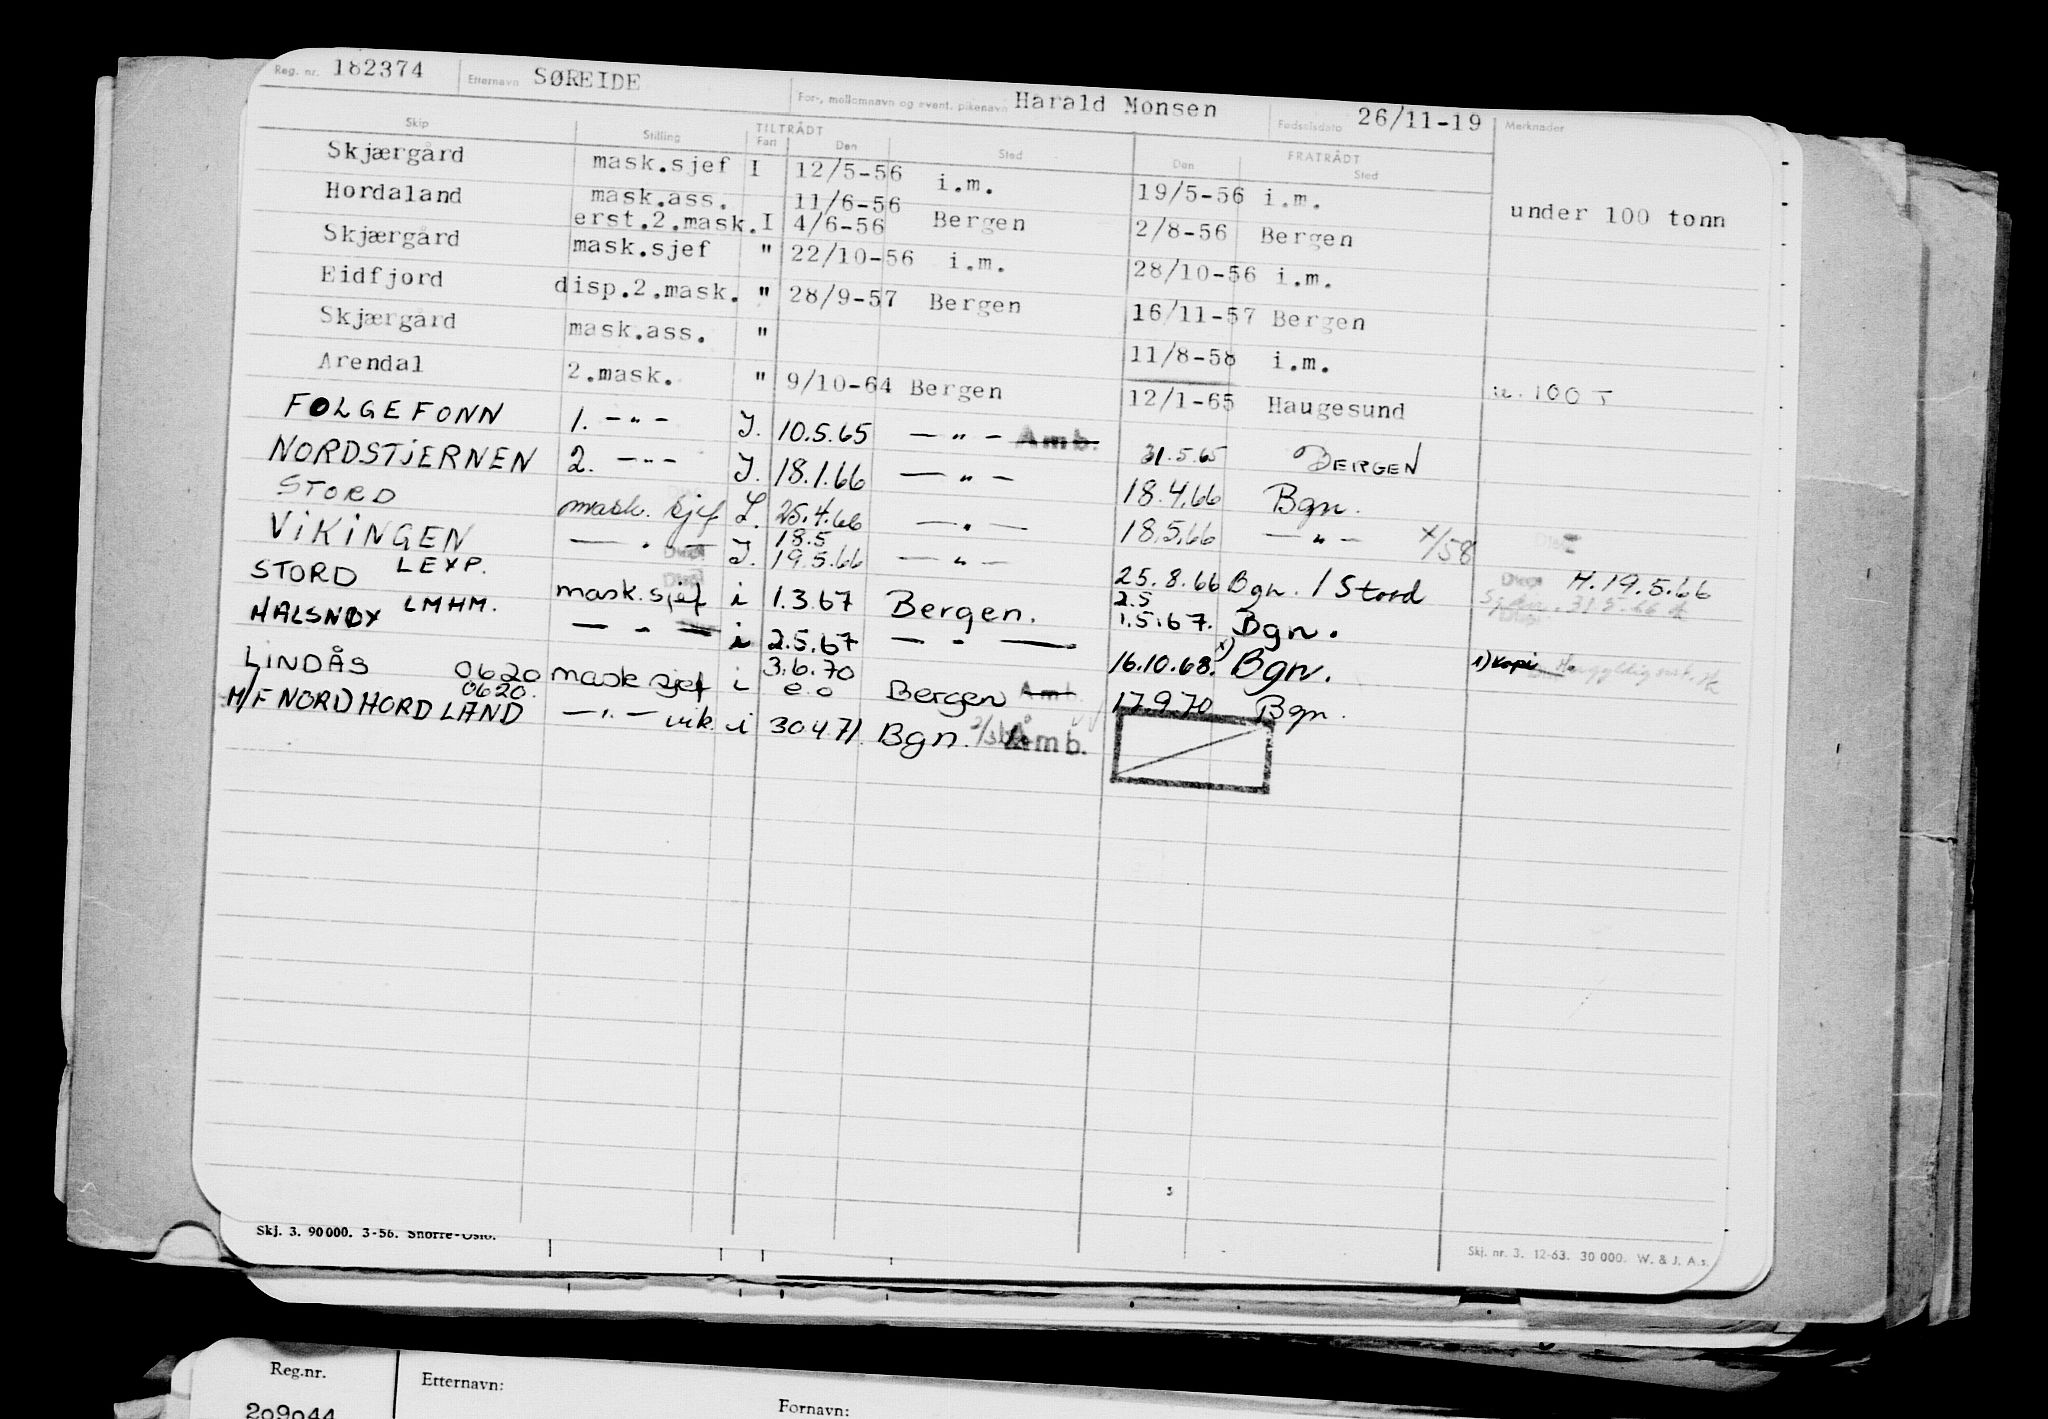 Reg. nr. 182374 Etternavn SØREIDE For-, mellomnavn og event. pikenavn Harald Monsen Fødselsdato 26/11-19 Merknader
Skip Stilling TILTRÅDT Fart Den Sted FRATRÅDT Den Sted
Skjærgård mask.sjef I 12/5-56 i.m. 19/5-56 i.m.
Hordaland mask.ass. 11/6-56
erst.2.mask. I 4/6-56 Bergen 2/8-56 Bergen under 100 tonn
Skjærgård mask.sjef " 22/10-56 i.m. 28/10-56 i.m.
Eidfjord disp.2.mask. " 28/9-57 Bergen 16/11-57 Bergen
Skjærgård mask.ass. " 11/8-58 i.m.
Arendal 2.mask. " 9/10-64 Bergen 12/1-65 Haugesund 100 T
FOLGEFONN 1. — " — I. 10.5.65 — " — Amb. 31.5.65 BERGEN
NORDSTJERNEN 2. — " — I. 18.1.66 — " — 18.4.66 Bgn.
STORD mask. sjef L. 25.4.66 — " — 18.5.66 — " — x/58
VIKINGEN — " — I. 18.5 19.5.66 — " — 25.8.66 Bgn. / Stord H.19.5.66
STORD LEXP. mask.sjef i 1.3.67 Bergen. 2.5 1.5.67. Bgn.
HALSNØY LMHM. — " — i 2.5.67 — " — 16.10.68. x) Bgn. 1) Kopi
LINDÅS 0620 mask sjef i 3.6.70 e.o Bergen Amb. 17.9.70 Bgn.
M/F NORDHORDLAND 0620. — " — vik. i 30.4.71. Bgn. Amb.
Skj. 3. 90 000. 3-56. Snorre-Oslo.
Skj. nr. 3. 12-63. 30 000. W. & J. A.s.
Reg.nr. Etternavn: Fornavn:
209044